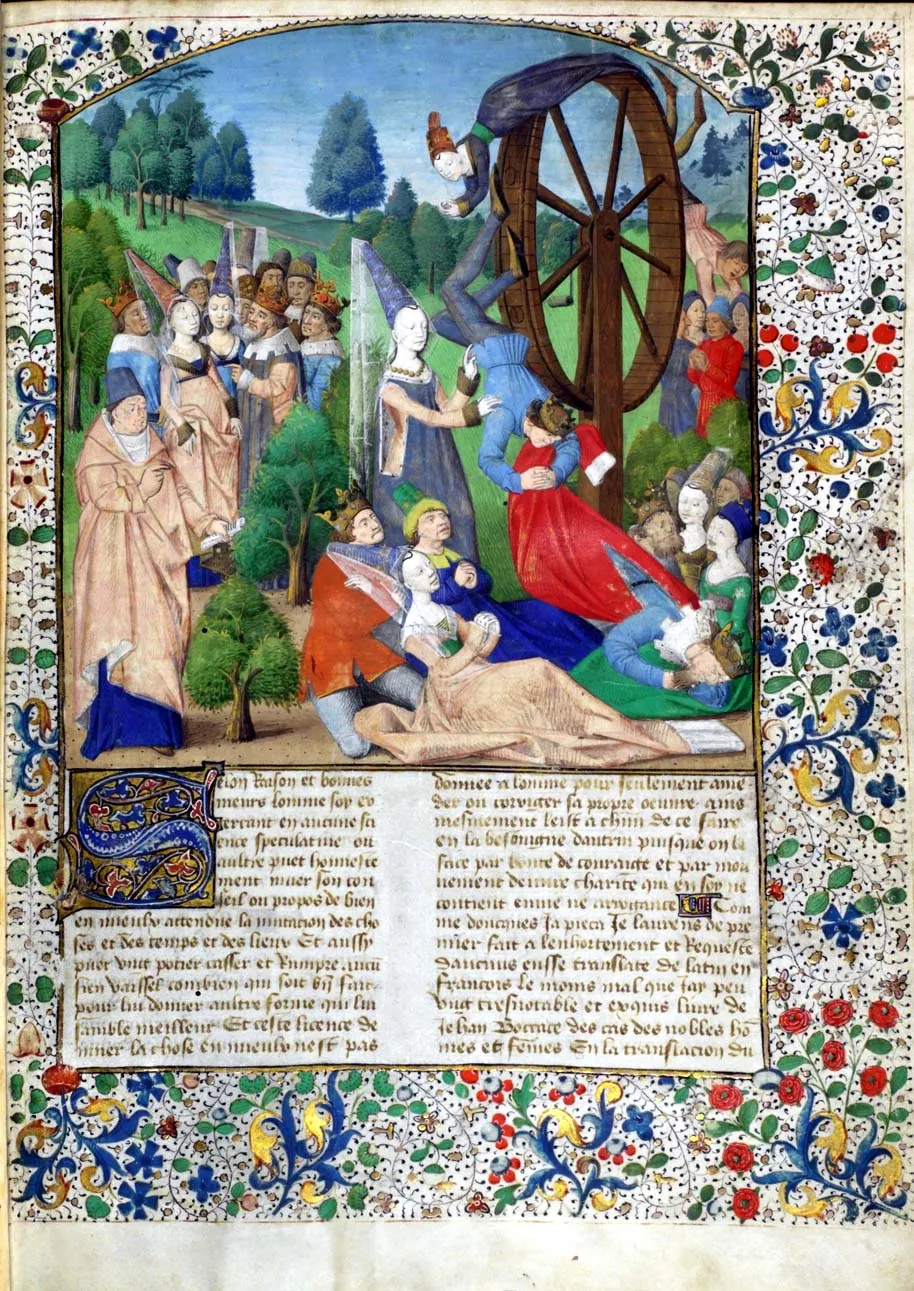 Selon Raison et bonnes
meurs lomme soy ex
ercant en aucune sci
ence speculative ou
aultre puet honneste
ment muer son con
seil ou propos de bien
en mieulx attendue la mutation des cho
ses et des temps et des lieux Et aussy
puet ung potier casser et Rumpre aucu
sien vaissel combien qui soit bn fait
pour lui donner aultre forme qui lui
samble meilleur Et ceste licence de
muer la chose en mieulx nest pas
donnee a lomme pour seulement ame
der ou corriger sa propre oeuvre ains
mesmement leist a chun de ce faire
en la besoingne daultrui puisque on le
face par bonte de couraige et par mou
vement de vraie charite qui en soy ne
contient envie ne arrogance Com
me doncques Ja pieca Je laurens de pre
mier fait a lenhortement et Requeste
daucuns eusse translate de latin en
francois le moins mal que Jay peu
ung tresnotable et exquis livre de
Jehan Boccace des cas des nobles ho
mes et femes En la translacion du